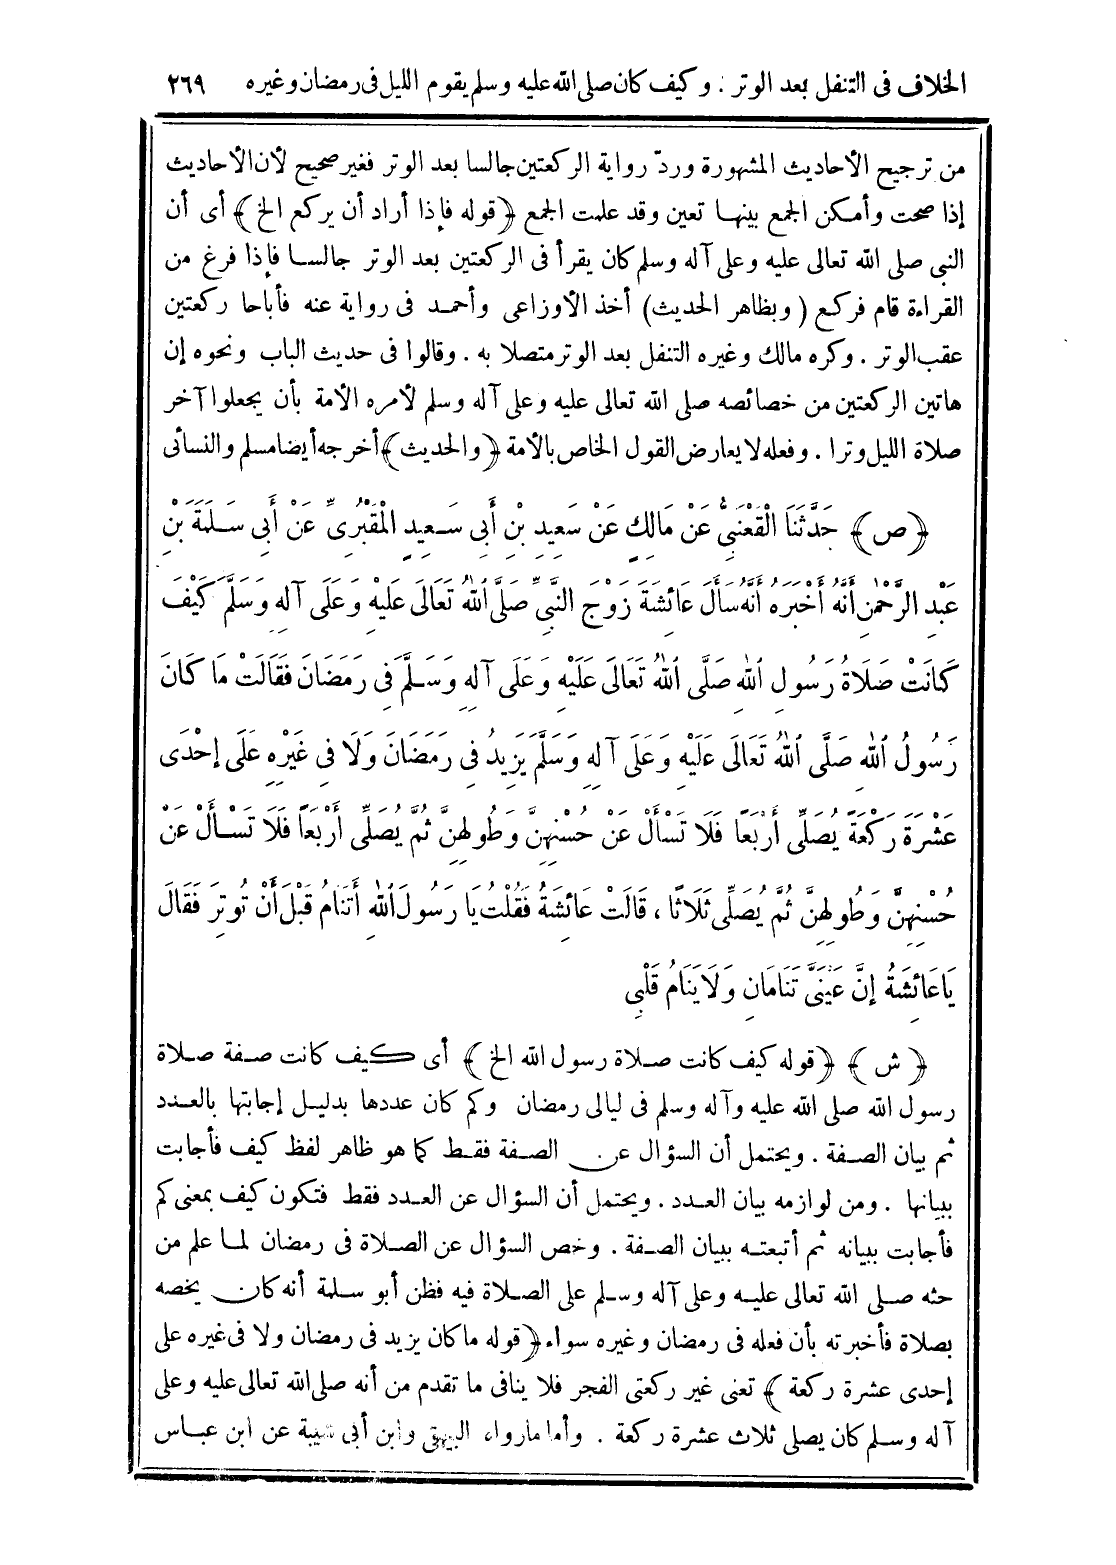 الخلاف فى التنفل بعد الوتر : وكيف كان صلى الله عليه وسلم يقوم الليل فى رمضان وغيره ٢٦٩
من ترجيح الأحاديث المشهورة وردّ رواية الركعتين جالسا بعد الوتر فغير صحيح لأن الأحاديث
إذا صحت وأمكن الجمع بينها تعين وقد علمت الجمع ﴿قوله فإذا أراد أن يركع الخ﴾ أى أن
النبى صلى الله تعالى عليه وعلى آله وسلم كان يقرأ فى الركعتين بعد الوتر جالسا فإذا فرغ من
القراءة قام فركع (وبظاهر الحديث) أخذ الأوزاعى وأحمد فى رواية عنه فأباحا ركعتين
عقب الوتر . وكره مالك وغيره التنفل بعد الوتر متصلا به . وقالوا فى حديث الباب ونحوه إن
هاتين الركعتين من خصائصه صلى الله تعالى عليه وعلى آله وسلم لأمره الأمة بأن يجعلوا آخر
صلاة الليل وترا . وفعله لا يعارض القول الخاص بالأمة ﴿والحديث﴾ أخرجه أيضا مسلم والنسائى
﴿ص﴾ حَدَّثَنَا الْقَعْنَبِىُّ عَنْ مَالِكٍ عَنْ سَعِيدِ بْنِ أَبِى سَعِيدٍ الْمَقْبُرِىِّ عَنْ أَبِى سَلَمَةَ بْنِ
عَبْدِ الرَّحْمٰنِ أَنَّهُ أَخْبَرَهُ أَنَّهُ سَأَلَ عَائِشَةَ زَوْجَ النَّبِىِّ صَلَّى اللهُ تَعَالَى عَلَيْهِ وَعَلَى آلِهِ وَسَلَّمَ كَيْفَ
كَانَتْ صَلَاةُ رَسُولِ اللهِ صَلَّى اللهُ تَعَالَى عَلَيْهِ وَعَلَى آلِهِ وَسَلَّمَ فِى رَمَضَانَ فَقَالَتْ مَا كَانَ
رَسُولُ اللهِ صَلَّى اللهُ تَعَالَى عَلَيْهِ وَعَلَى آلِهِ وَسَلَّمَ يَزِيدُ فِى رَمَضَانَ وَلَا فِى غَيْرِهِ عَلَى إِحْدَى
عَشْرَةَ رَكْعَةً يُصَلِّى أَرْبَعًا فَلَا تَسْأَلْ عَنْ حُسْنِهِنَّ وَطُولِهِنَّ ثُمَّ يُصَلِّى أَرْبَعًا فَلَا تَسْأَلْ عَنْ
حُسْنِهِنَّ وَطُولِهِنَّ ثُمَّ يُصَلِّى ثَلَاثًا ، قَالَتْ عَائِشَةُ فَقُلْتُ يَا رَسُولَ اللهِ أَتَنَامُ قَبْلَ أَنْ تُوتِرَ فَقَالَ
يَا عَائِشَةُ إِنَّ عَيْنَىَّ تَنَامَانِ وَلَا يَنَامُ قَلْبِى
﴿ش﴾ ﴿قوله كيف كانت صلاة رسول الله الخ﴾ أى كيف كانت صفة صلاة
رسول الله صلى الله عليه وآله وسلم فى ليالى رمضان وكم كان عددها بدليل إجابتها بالعدد
ثم بيان الصفة . ويحتمل أن السؤال عن الصفة فقط كما هو ظاهر لفظ كيف فأجابت
ببيانها . ومن لوازمه بيان العدد . ويحتمل أن السؤال عن العدد فقط فتكون كيف بمعنى كم
فأجابت ببيانه ثم أتبعته ببيان الصفة . وخص السؤال عن الصلاة فى رمضان لما علم من
حثه صلى الله تعالى عليه وعلى آله وسلم على الصلاة فيه فظن أبو سلمة أنه كان يخصه
بصلاة فأخبرته بأن فعله فى رمضان وغيره سواء ﴿قوله ما كان يزيد فى رمضان ولا فى غيره على
إحدى عشرة ركعة﴾ تعنى غير ركعتى الفجر فلا ينافى ما تقدم من أنه صلى الله تعالى عليه وعلى
آله وسلم كان يصلى ثلاث عشرة ركعة . وأما مارواه البيهقى وابن أبى شيبة عن ابن عباس